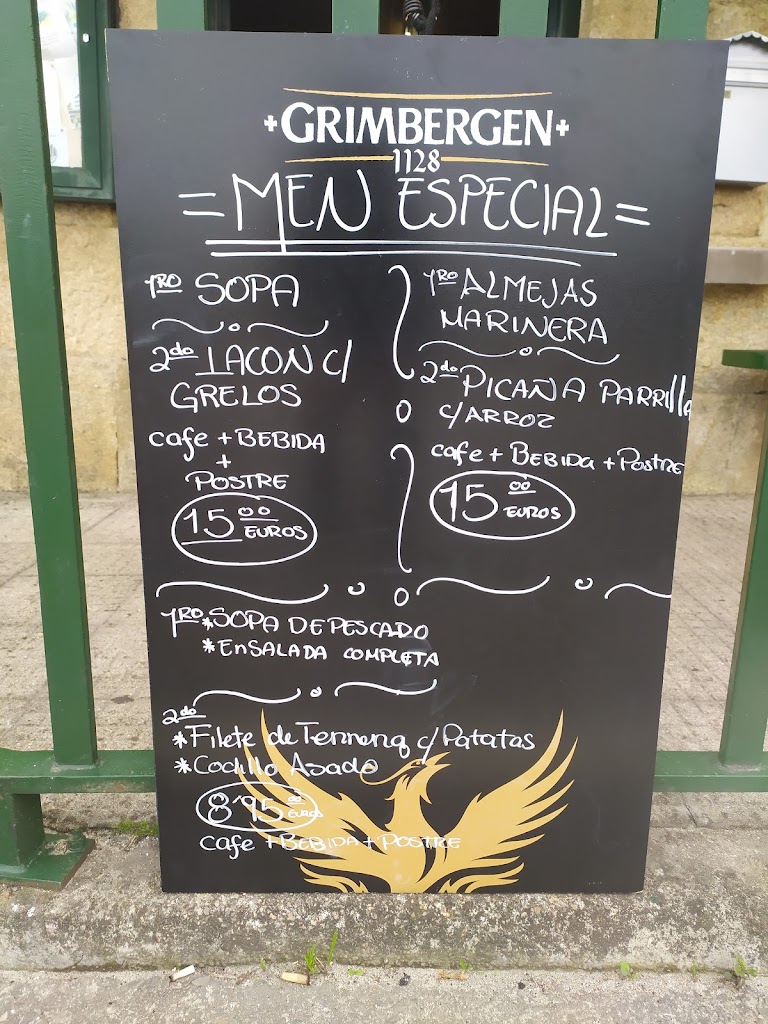 +GRIMBERGEN+
1128
=MEN ESPECIAL=
1RO SOPA
2do LACON C/
GRELOS
cafe + BEBIDA
+
POSTRE
15 00 EUROS
1RO ALMEJAS
MARINERA
2do PICAÑA PARRILLA
C/ARROZ
cafe + BEBIDA + POSTRE
15 00 EUROS
1RO *SOPA DE PESCADO
*ENSALADA COMPLETA
2do
*Filete de Ternera c/Patatas
*Codillo Asado
8'95 EUROS
cafe + BEBIDA + POSTRE